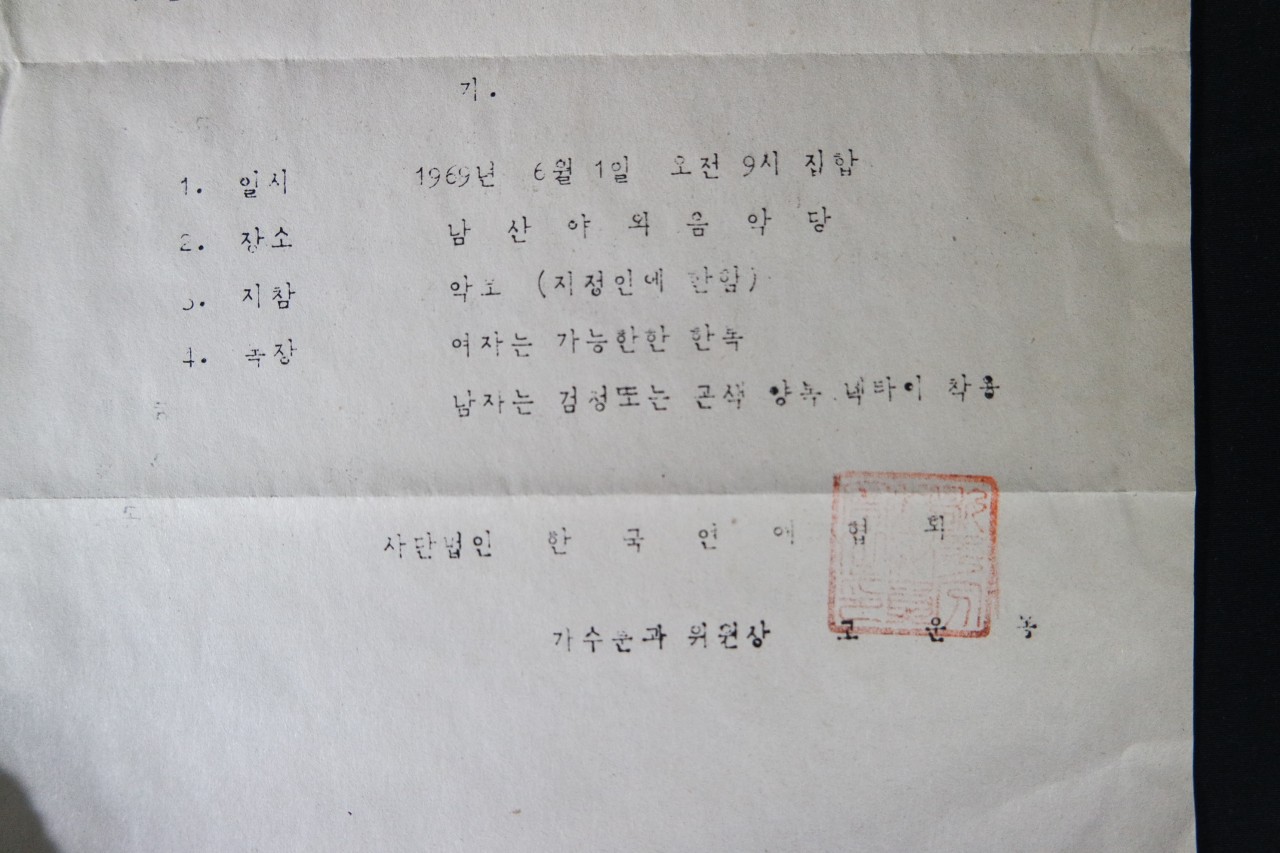 기.
1. 일시 1969년 6월 1일 오전 9시 집합
2. 장소 남 산 야 외 음 악 당
3. 지참 악보 (지정인에 한함)
4. 복장 여자는 가능한한 한복
남자는 검정또는 곤색 양복 넥타이 착용
사단법인 한 국 연 예 협 회
가수분과 위원장 고 운 봉